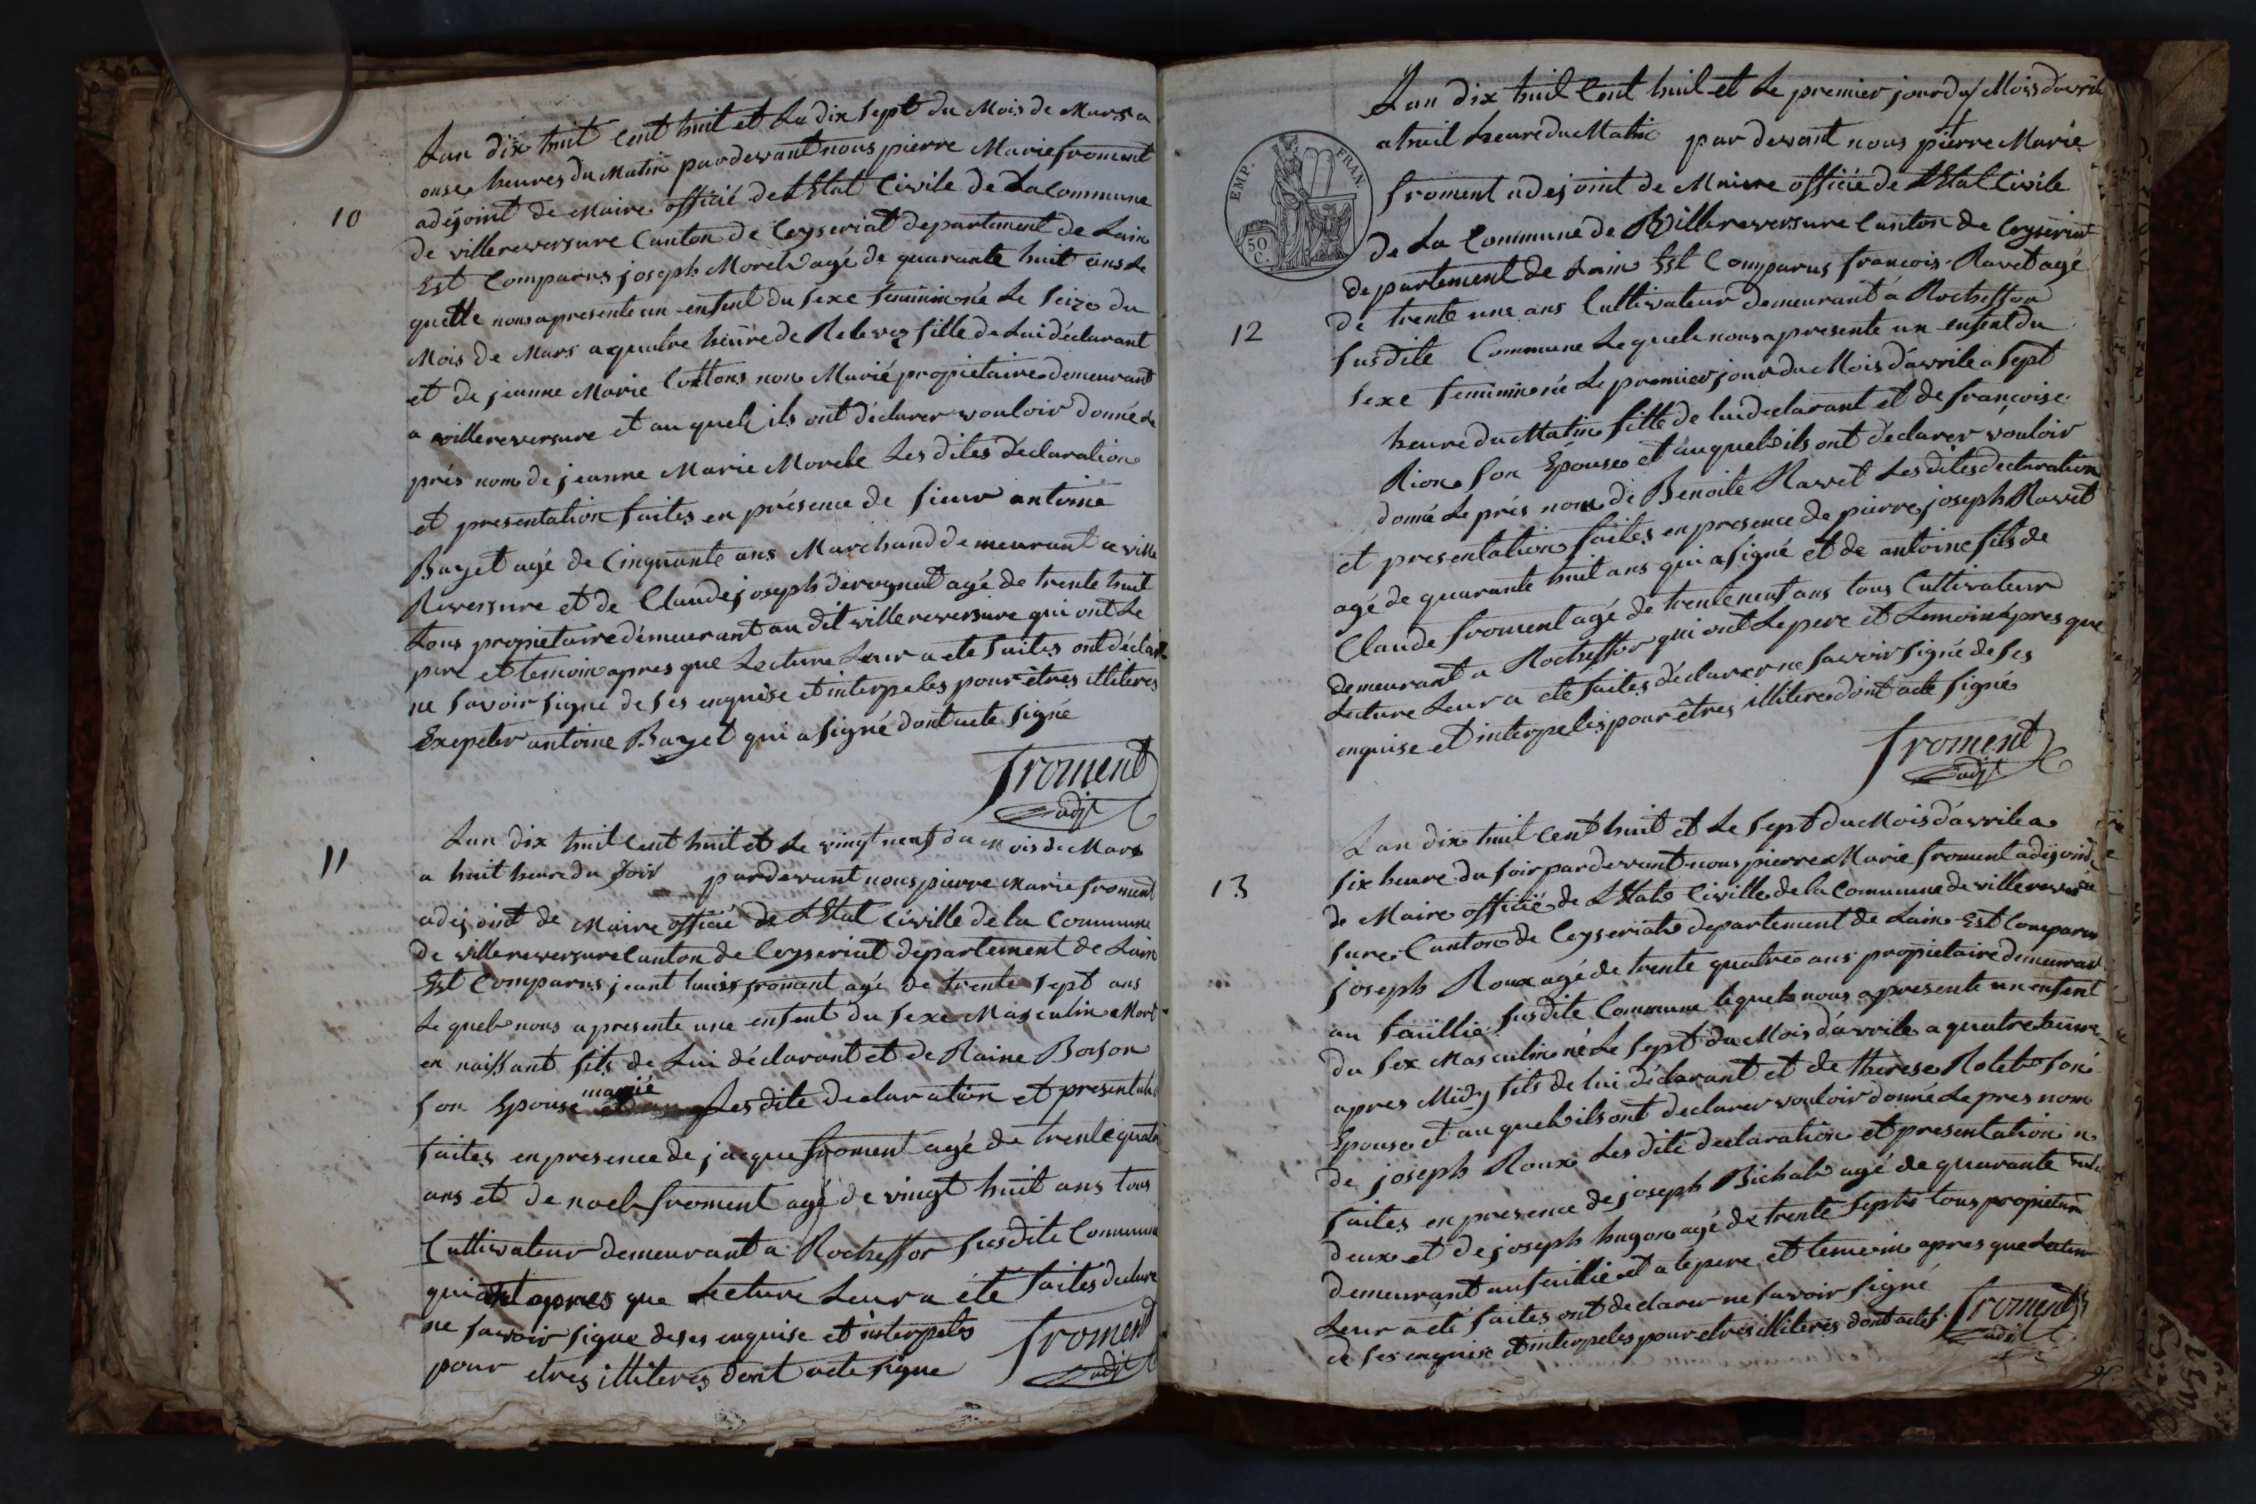 10
Lan dix huit Cent huit et Le dix Sept du Mois de Mars a
onse heures du Matin pardevant nous pierre Marie froment
adejoint de Maire officié de L'Etat Civile de La Commune
de villereversure Canton de Ceyseriat departement de Lain
Est Comparus joseph Morele agé de quarante huit ans Le
quelle nous apresente un enfent du Sexe feminin né Le Seize du
Mois de Mars a quatre heure de Relevez fille de Lui déclarant
et de jeanne Marie Cottons non Marié propietaire demeurant
a villereversure et au quels ils ont déclarer vouloir donné Le
prés nom de jeanne Marie Morele Les dites déclaration
et presentation faites en présence de Sieur antoine
Bayet agé de Cinquante ans Marchand demeurant a ville
Reversure et de Claude joseph Deroynat agé de trente huit
tous propietaire demeurant au dit villereversure qui ont Le
pere et temoin apres que Lecture Leur a ete faites ont déclar
ne Savoir Signé de Ses enquise et interpeles pour êtres illiteres
Exepeter antoine Bayet qui a Signé dont acte Signé
froment
adj
11
Lan dix huit Cent huit et Le vingt neuf du mois de Mars
a huit heure du Soir pardevant nous pierre Marie froment
adejoint de Maire officié de L'Etat Civille de la Commune
de villereversure Canton de Ceyseriat departement de Lain
Est Comparus jeant Louis froment agé de trente Sept ans
Le quele nous apresente une enfent du Sexe Masculin Mort
en naissant fils de Lui déclarant et de Raine Boison
Son Epouse marié Les dite declaration et presentati
faites en presence de jacque froment agé de trente quatr
ans et de noele froment agé de vingt huit ans tous
Cultivateur demeurant a Rocheffor Susdite Commune
qui ont apres que Lecture Leur a été faites declare
ne Savoir Signe de ses enquise et interpeles
pour etres illiteres dont acte Signe
froment
adj
EMP. FRAN.
50 C.
12
Lan dix huit Cent huit et Le premier jour du Mois d'avrile
a huit heure du Matin par devant nous pierre Marie
froment adejoint de Maire officié de L'Etat Civile
de La Commune de Villereversure Canton de Ceyseriat
departement de Lain Est Comparus francois Ravet agé
de trente une ans Cultivateur demeurant á Rocheffor
Susdite Commune Le quele nous apresente un enfent du
Sexe feminin née Le premier jour du Mois d'avrile a Sept
heure du Matin fille de lui declarant et de françoise
Rion Son Epouse et auquele ils ont déclarer vouloir
donné Le prés nom de Benoite Ravet Les dites declaration
et presentation faites en presence de pierre joseph Ravet
agé de quarante huit ans qui a Signé et de antoine fils de
Claude froment agé de trente neuf ans tous Cultivateur
demeurant a Rocheffor qui ont Le pere et temoin apres que
Lecture Leur a été faites déclarer ne Savoir Signé de Ses
enquise et interpeles pour êtres illitere dont acte Signé
froment
adj
13
Lan dix huit Cent huit et Le Sept du Mois d'avrile a
Six heure du Soir pardevant nous pierre Marie froment adejoind
de Maire officié de L'Etate Civille de la Commune de villerever
sure Canton de Ceyseriate departement de Lain Est Comparus
joseph Roux agé de trente quatre ans propietaire demeurant
au faillie Susdite Commune lequele nous apresente un enfent
du Sex Masculin né Le Sept du Mois d'avrile a quatre heure
apres Midy fils de lui déclarant et de therese Rolet Son
Epouse et au quele ils ont declarer vouloir donné Le pres nom
de joseph Roux Les dite declaration et presentation
faites en presence de joseph Bichat agé de quarante
deux et de joseph hugon agé de trente Sept tous propietair
demeurant au faillie et a le pere et temoin apres que Lectur
Leur a été faites ont declarer ne Savoir Signé
de Ses enquise et interpeles pour etres illiteres dont acte S.
froment
adj